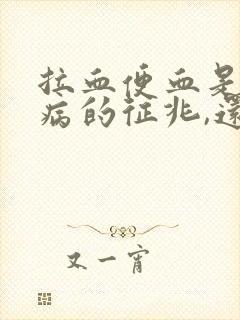 拉血便血是
病的征兆,還
又一宵